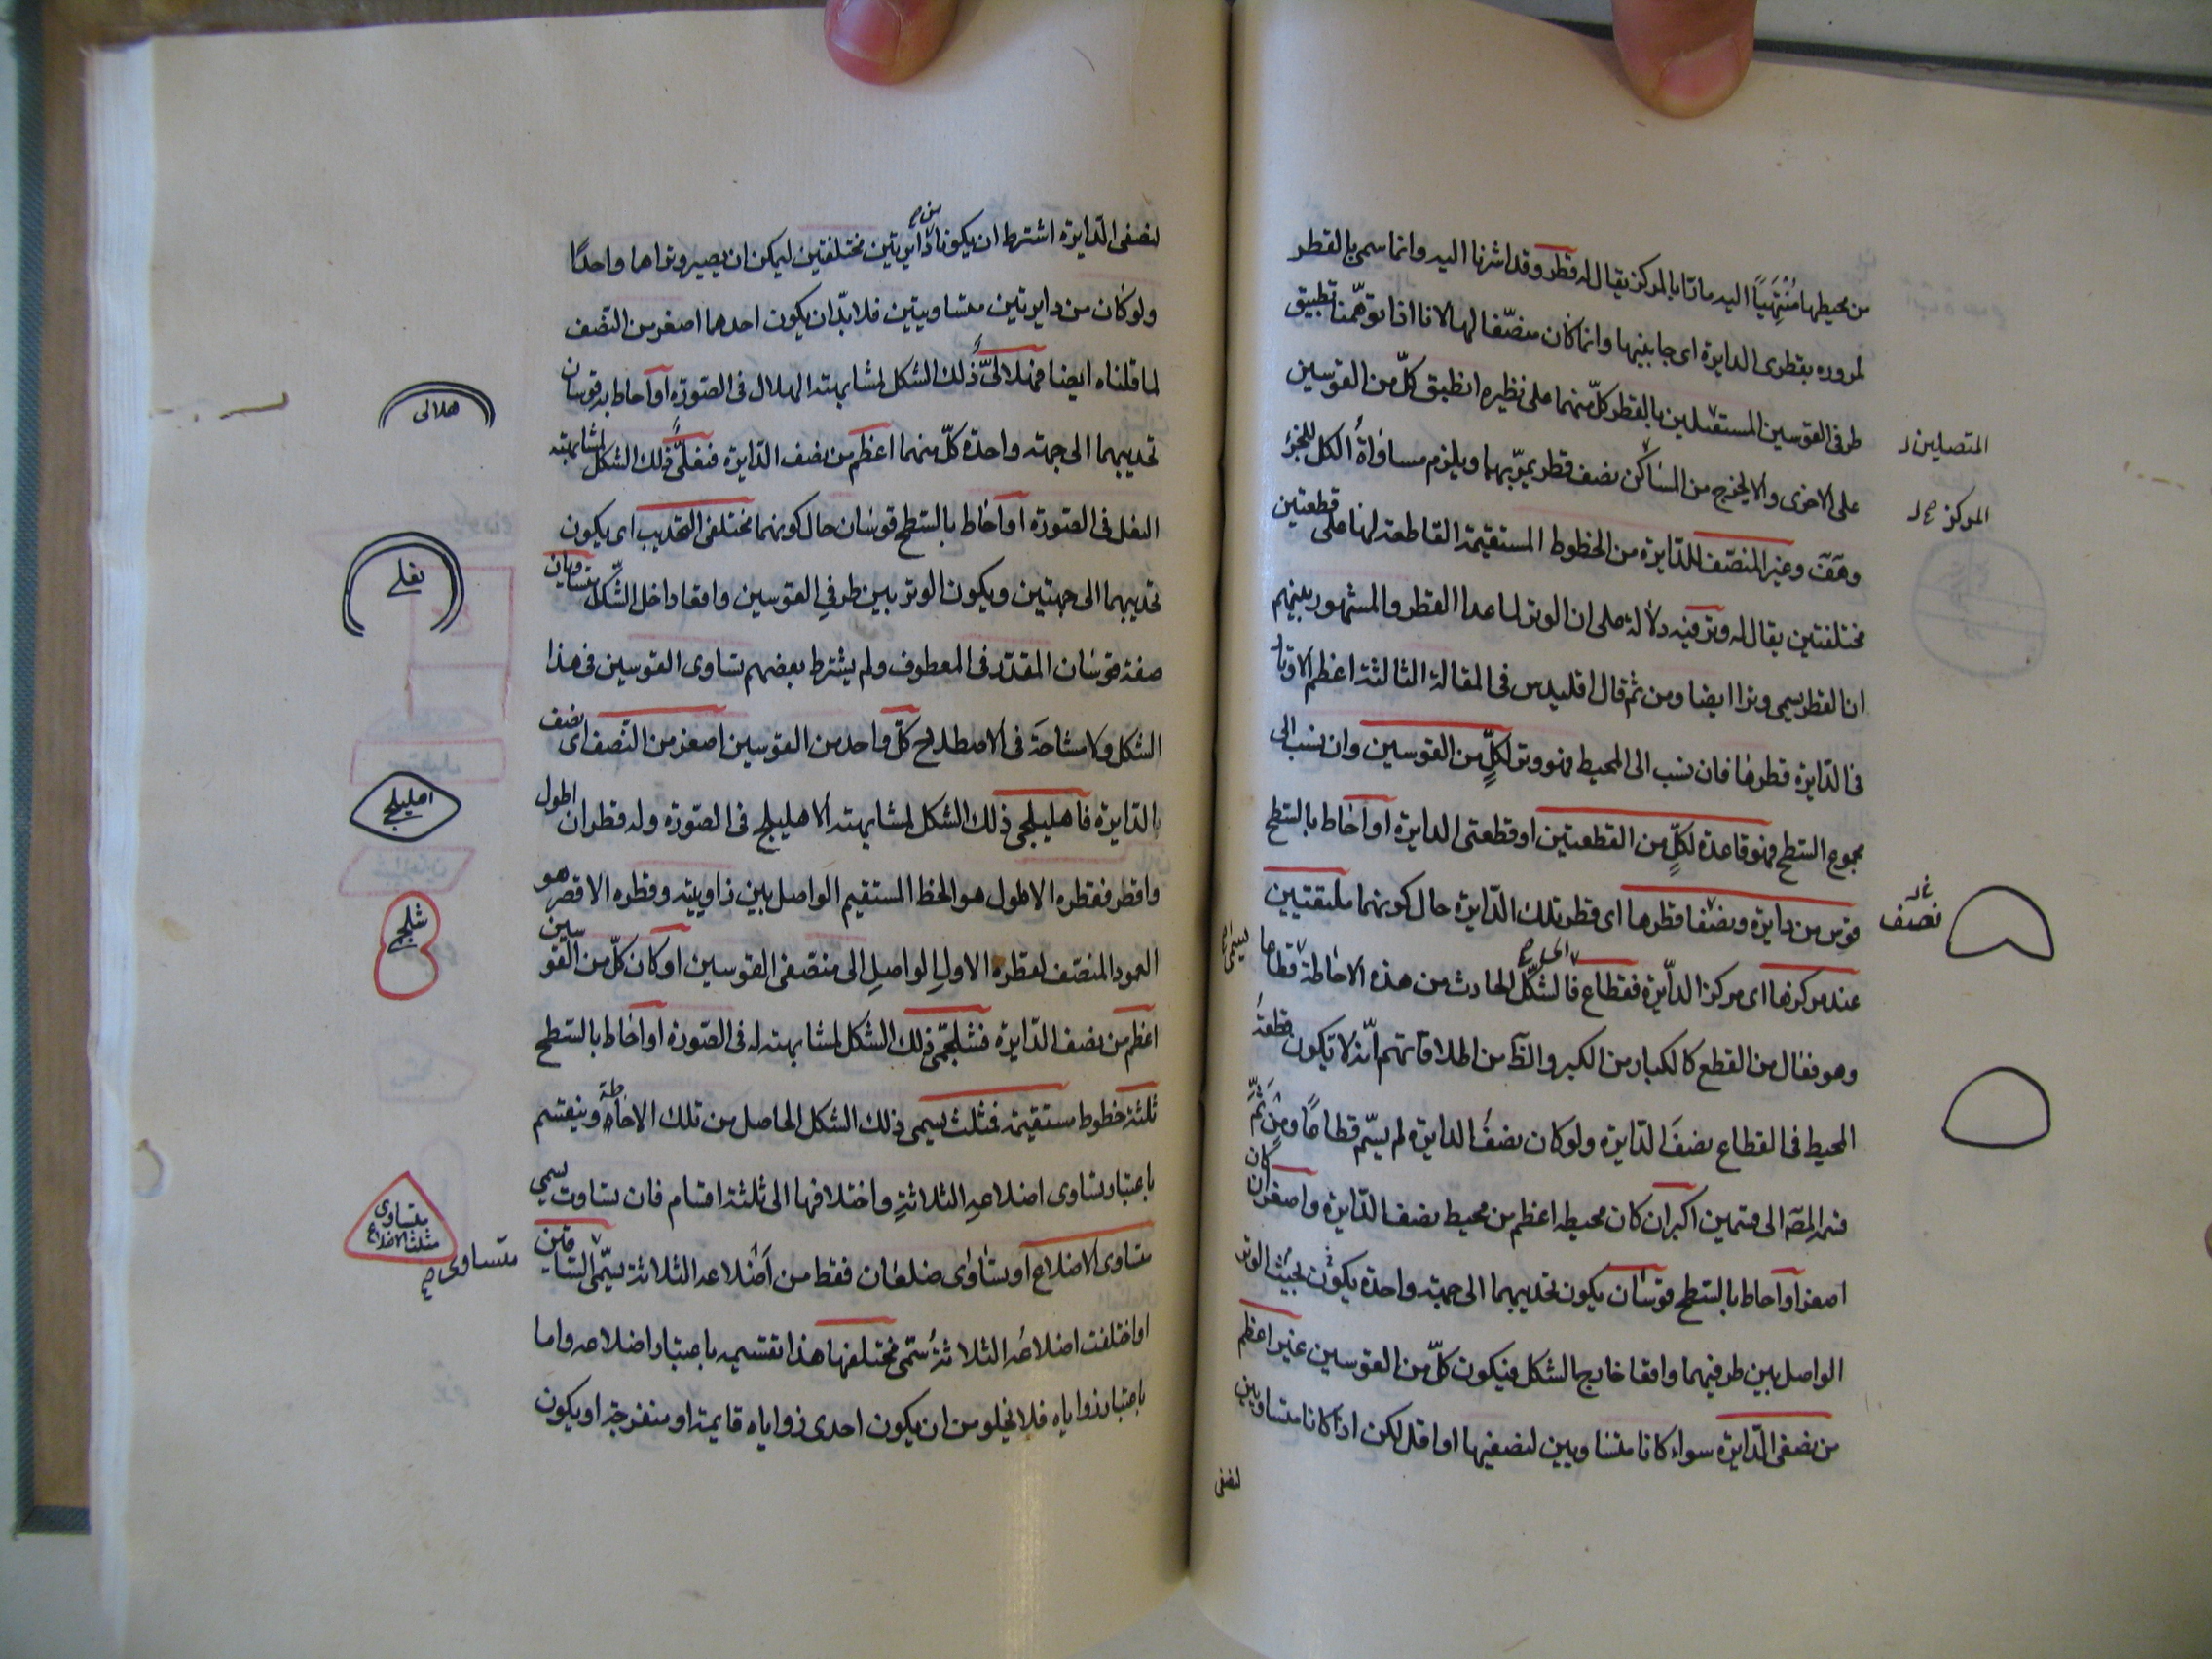 من محيطها مُنْتَهِيًا اليه مارّا بالمركز يقال له قطر وقد اشرنا اليه وانما سمى بالقطر
لمروره بقطرى الدايرة اى جانبيها وانما كان منصّفا لها لانا اذا توهّمنا تطبيق
طرفى القوسين المستقبلين بالقطر كلّ منهما على نظيره انطبق كلّ من القوسين
المتصلين
على الاخرى والا يخرج من الساكن نصف قطر يمرّ بهما ويلزم مساواة الكل للجزء
المركز
وهَفَ وغير المنصّف للدّايرة من الخطوط المستقيمة القاطعة لها على قطعتين
مختلفتين يقال له وتر فيه دلالة على ان الوتر لما عدا القطر والمشهور بينهم
ان القطر يسمى وترا ايضا ومن ثم قال اقليدس فى المقالة الثالثة اعظم الاوتار
فى الدّايرة قطرها فان نسب الى المحيط فهو وتر لكلٍّ من القوسين وان نسب الى
مجموع السّطح فهو قاعدة لكلٍّ من القطعتين او قطعتى الدايرة او احاط بالسّطح
قوس من دايرة ونصفا قطرها اى قطر تلك الدّايرة حال كونهما ملتقتيين
نصف
عند مركزها اى مركز الدّايرة فقطاع فالشكل الحادث من هذه الاحاطة قطاعا
يسمى
وهو فعال من القطع كالكبار من الكبر والظ من اطلاقاتهم انّه لا يكون قطعة
المحيط فى القطاع نصفَ الدّايرة ولو كان نصفُ الدايرة لم يسمّ قطاعًا ومِن ثَمّ
قسم المصّ الى قسمين اكبر ان كان محيطه اعظم من محيط نصف الدّايرة واصغر ان كان
اصغر او احاط بالسّطح قوسان يكون تحديبهما الى جهة واحدة يكون بحيث الوتر
الواصل بين طرفيهما واقعا خارج الشكل فيكون كلّ من القوسين غير اعظم
من نصفى الدّايرة سواء كانا متساويين لنصفيها او اقل لكن اذا كانا متساويين
لنصفى
لنصفى الدّايرة اشترط ان يكونا من دايرتين مختلفتين ليمكن ان يصير وتراهما واحدًا
ولو كان من دايرتين متساويتين فلا بدّ ان يكون احدهما اصغر من النّصف
لما قلناه ايضا فهلالىٌّ ذلك الشكل لمشابهته الهلال فى الصّورة او احاط به قوسان
هلالى
تحديبهما الى جهة واحدة كلّ منهما اعظم من نصف الدّايرة فنعلىٌّ ذلك الشكل لمشابهته
النعل فى الصّورة او احاط بالسّطح قوسان حال كونهما مختلفى التّحديب اى يكون
نعلے
تحديبهما الى جهتين ويكون الوتر بين طرفى القوسين واقعا داخل الشّكل متساويان
صفة قوسان المقدّر فى المعطوف ولم يشترط بعضهم تساوى القوسين فى هذا
الشكل ولا مشاحة فى الاصطلاح كلّ واحد من القوسين اصغر من النّصف اى نصف
الدّايرة فاهليلجى ذلك الشكل لمشابهته الاهليلج فى الصّورة وله قطران اطول
اهليلجے
واقصر فقطره الاطول هو الخط المستقيم الواصل بين زاويتيه وقطره الاقصر هو
العمود المنصّف لقطره الاولِ الواصلِ الى منتصفى القوسين او كان كلّ من القوسين
شلجمے
اعظم من نصف الدّايرة فشلجمى ذلك الشكل لمشابهته له فى الصّورة او احاط بالسّطح
ثلثة خطوط مستقيمة فمثلث يسمى ذلك الشكل الحاصل من تلك الاحاطة وينقسم
باعتبار تساوى اضلاعه الثلاثةِ واختلافها الى ثلثة اقسام فان تساوت يسمى
متساوى
مثلث الاضلاع
متساوى
متساوى الاضلاع او تساوى ضلعان فقط من اضلاعه الثلاثة يسمّى السّاقين
او اختلفت اضلاعُه الثلاثةُ سمّى مختلفها هذا تقسيمه باعتبار اضلاعه واما
باعتبار زواياه فلا يخلو من ان يكون احدى زواياه قايمة او منفرجة او يكون